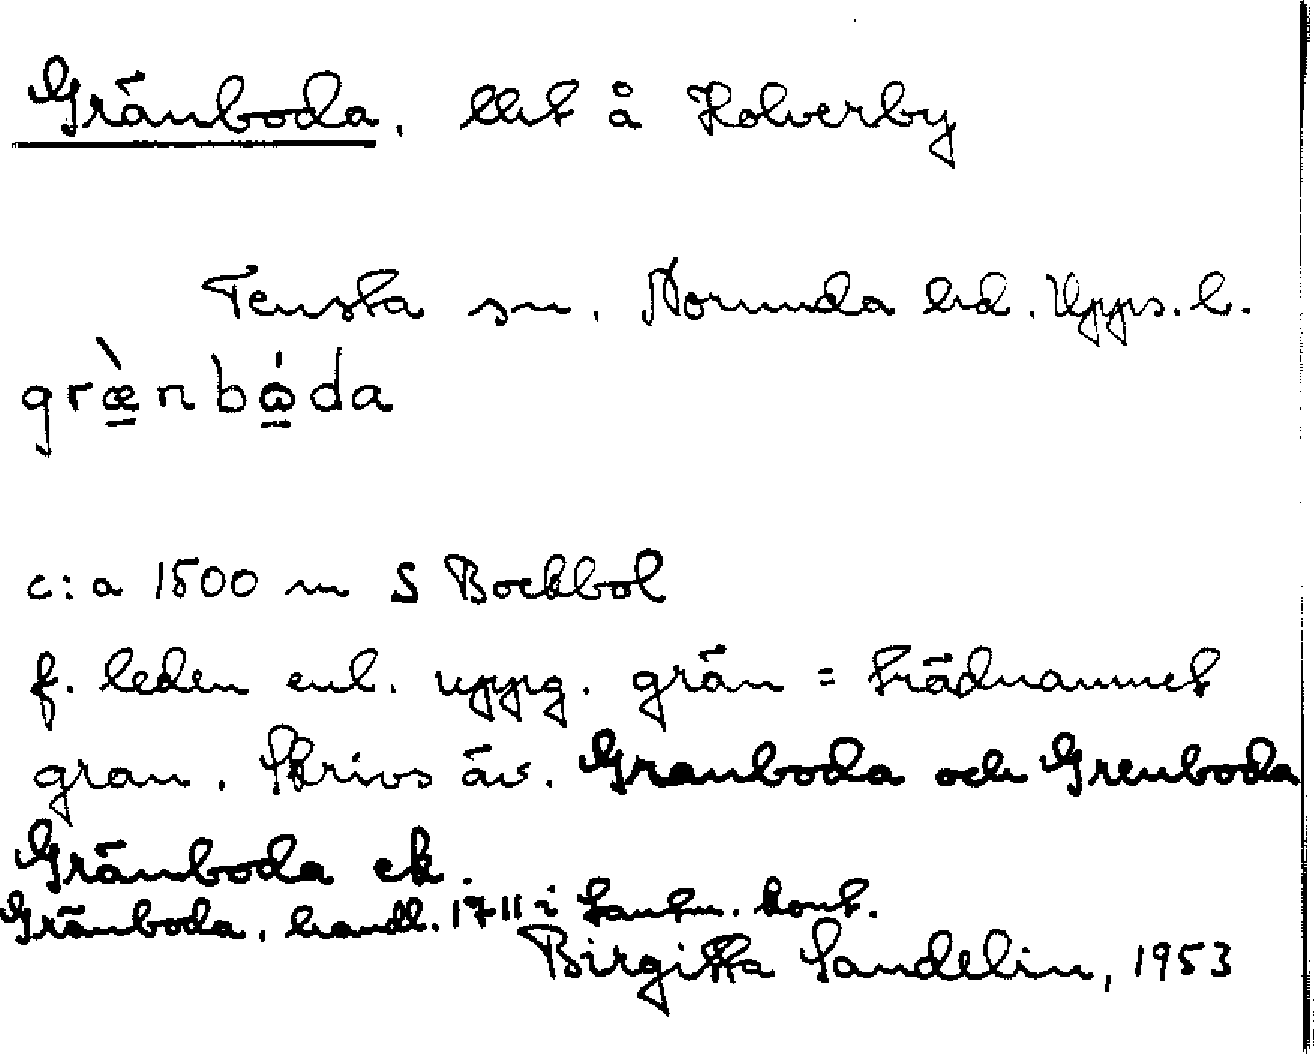 Gränboda, lht å Holverby
Tensta sn. Norunda hd. Upps. l.
græ̠̀nbɷ̠́da
c:a 1500 m S Bockbol
f. leden enl. uppg. grän = trädnamnet
gran. Skrivs äv. Granboda och Grenboda
Gränboda ek.
Gränboda, handl. 1711 i Lantm. kont.
Birgitta Sandelin, 1953